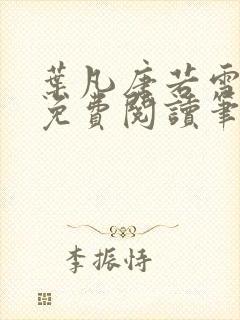 葉凡唐若雪
免費閱讀筆
李振恃